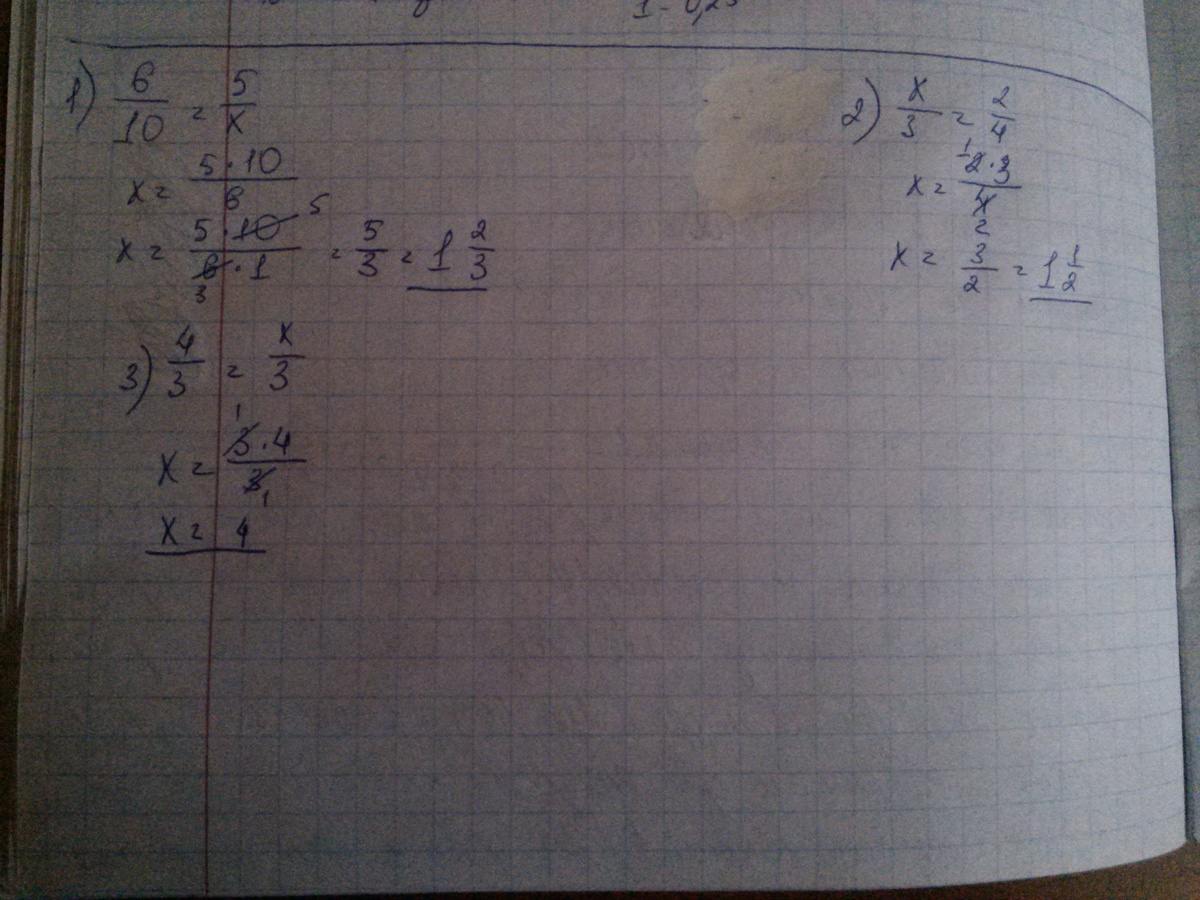 1 - 0,25
1) 6/10 = 5/x
x = 5·10/6
x = 5·10/6·1 = 5/3 = 1 2/3
5
3
2) x/3 = 2/4
x = 2·3/4
1
2
x = 3/2 = 1 1/2
3) 4/3 = x/3
x = 3·4/3
1
1
x = 4